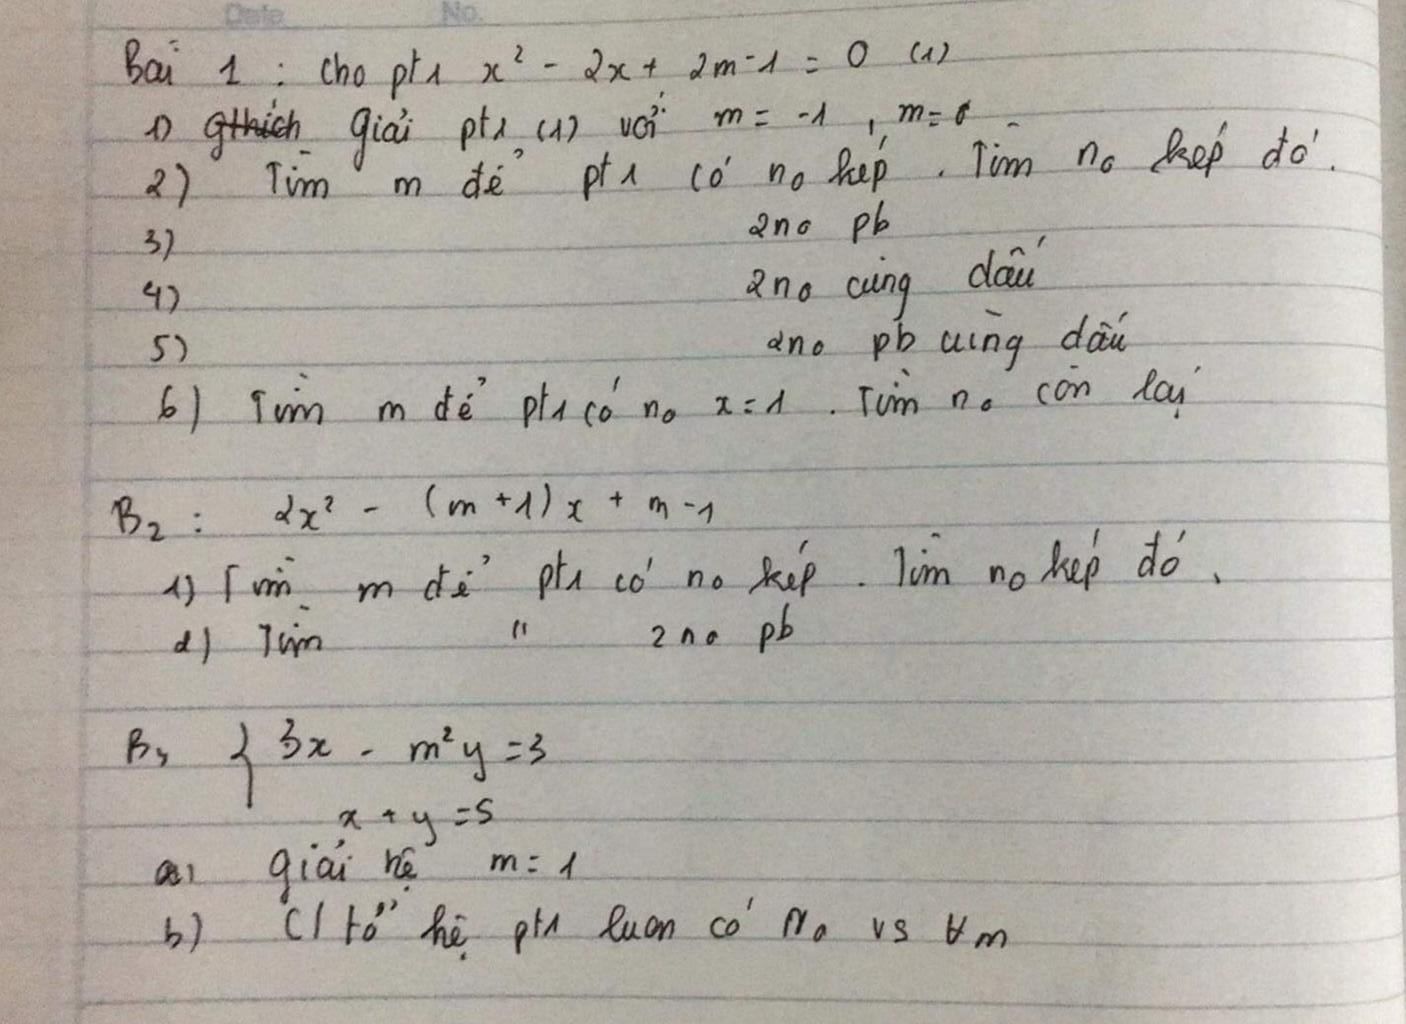 Date No.
Bài 1 : cho ptr x² - 2x + 2m-1 = 0 (1)
1) Gthích Giải ptr (1) với m = -1 , m=
2) Tìm m để ptr có no kép . Tìm no kép đó .
3) 2no pb
4) 2no cùng dấu
5) 2no pb cùng dấu
6) Tìm m để ptr có no x = 1 . Tìm no còn lại
B2 : 2x² - (m+1)x + m-1
1) Tìm m để ptr có no kép . Tìm no kép đó .
2) Tìm " 2no pb
B3 { 3x - m²y = 3
x + y = 5
a) giải hệ m = 1
b) C/tỏ hệ ptr luon có No vs ∀m